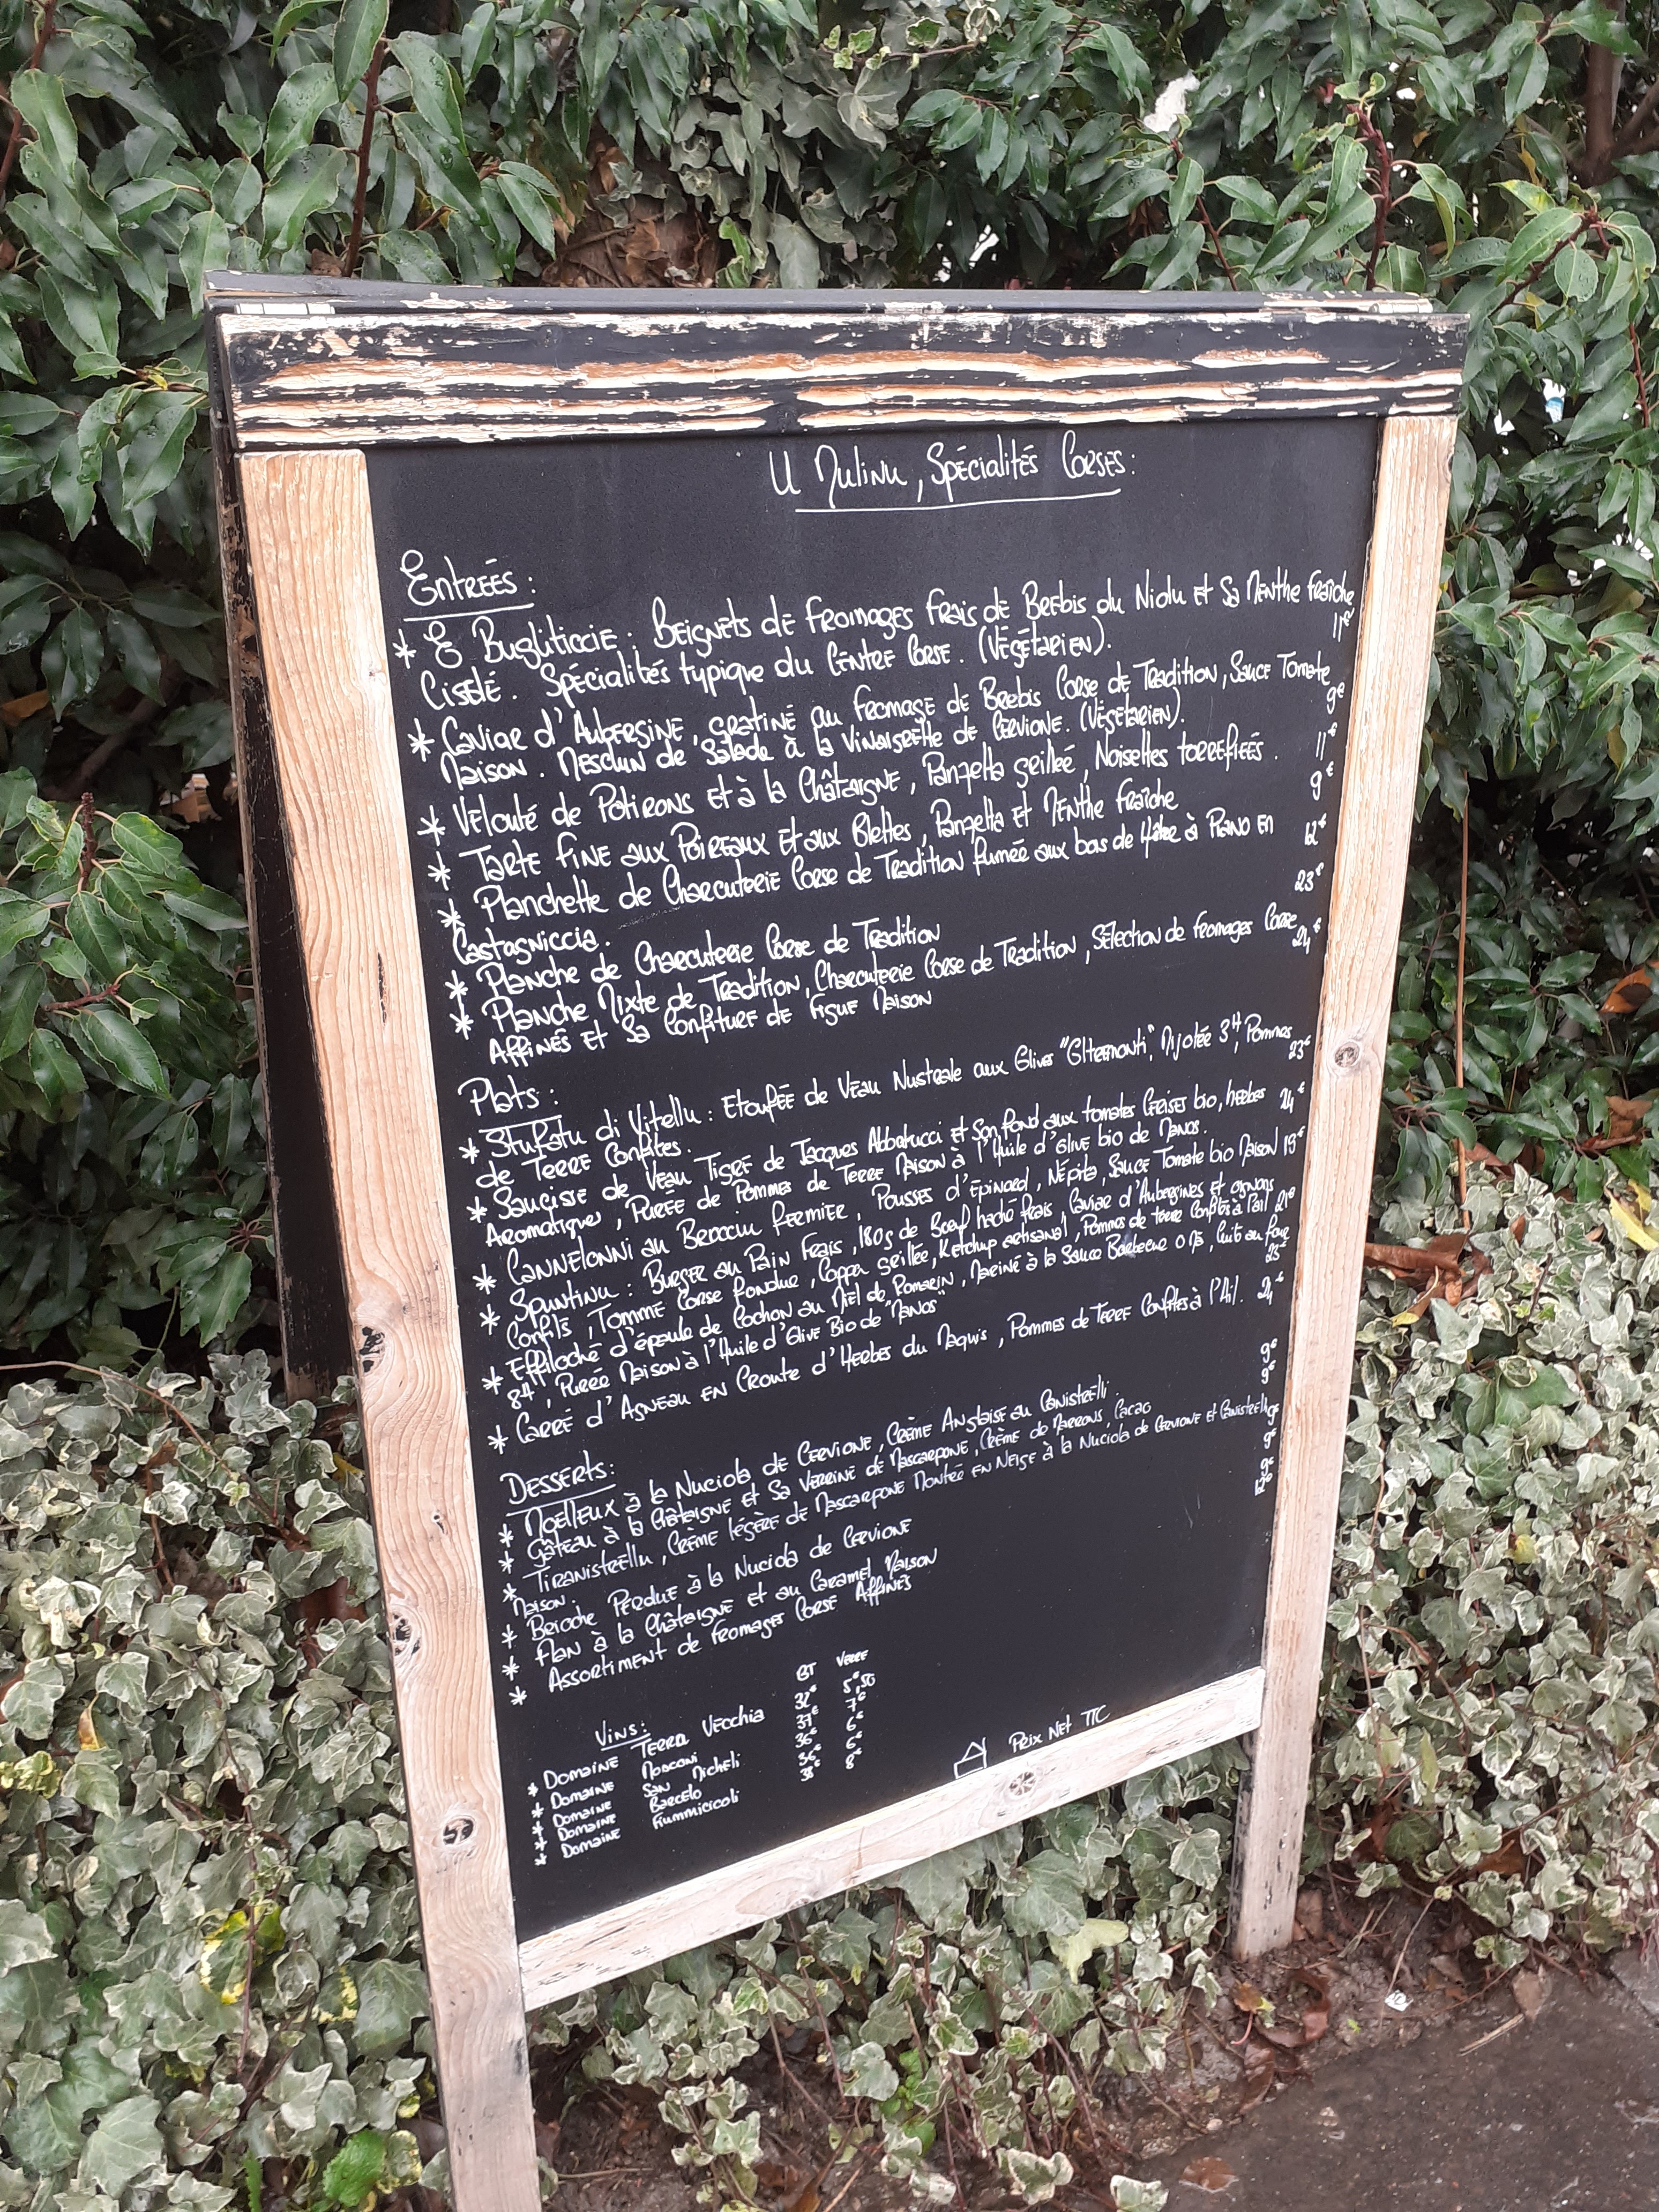 U Mulinu, Spécialités Corses:
Entrées:
* E Bugliticcie: Beignets de fromages frais de Brebis du Niolu et sa Menthe fraîche
Ciselé. Spécialités typique du Centre Corse. (Végétarien). 11€
* Caviar d'Aubergine, gratiné au fromage de Brebis Corse de Tradition, Sauce Tomate
Maison. Mesclun de Salade à la Vinaigrette de Cervione. (Végétarien). 9€
* Velouté de Potirons et à la Châtaigne, Panzetta grillée, Noisettes torréfiées. 11€
* Tarte fine aux Poireaux et aux Blettes, Panzetta et Menthe fraîche 9€
* Planchette de Charcuterie Corse de Tradition fumée aux bois de Hêtre à Piano en 12€
Castagniccia.
* Planche de Charcuterie Corse de Tradition 23€
* Planche Mixte de Tradition, Charcuterie Corse de Tradition, Sélection de fromages Corse 24€
Affinés et sa Confiture de figue Maison
Plats:
* Stufatu di Vitellu: Etoufée de Veau Nustrale aux Olives "Oltremonti", Mijotée 3H, Pommes 23€
de Terre Confites.
* Saucisse de Veau Tigré de Jacques Abbatucci et Son fond aux tomates Cerises bio, herbes 24€
Aromatiques, Purée de Pommes de Terre Maison à l'Huile d'Olive bio de Manos.
* Cannelonni au Brocciu fermier, Pousses d'Epinard, Népita, Sauce Tomate bio Maison 19€
* Spuntinu: Burger au Pain Frais, 180g de Boeuf haché frais, Caviar d'Aubergines et oignons
Confits, Tomme Corse fondue, Coppa grillée, Ketchup artisanal, Pommes de terre Confites à l'ail 21€
* Effiloché d'épaule de Cochon au Miel de Romarin, Mariné à la Sauce Barbecue, Cuit au four 23€
8H, Purée Maison à l'Huile d'Olive Bio de "Manos"
* Carré d'Agneau en Croute d'Herbes du Maquis, Pommes de Terre Confites à l'Ail. 24
Desserts:
* Moelleux à la Nuciola de Cervione, Crème Anglaise au Canistrelli. 9€
* Gâteau à la Châtaigne et Sa Verrine de Mascarpone, Crème de Marrons, Cacao 9€
* Tiramistrellu, Crème légère de Mascarpone Montée en Neige à la Nuciola de Cervione et Canistrelli 9€
Maison.
* Brioche Perdue à la Nuciola de Cervione 9€
* Flan à la Châtaigne et au Caramel Maison 9€
* Assortiment de fromages Corse Affinés 12€
Vins: BT Verre
* Domaine Terra Vecchia 32€ 5€,50
* Domaine Morconi 37€ 7€
* Domaine San Micheli 36€ 6€
* Domaine Barcelo 36€ 6€
* Domaine Fiummicicoli 38€ 8€
Prix Net TTC